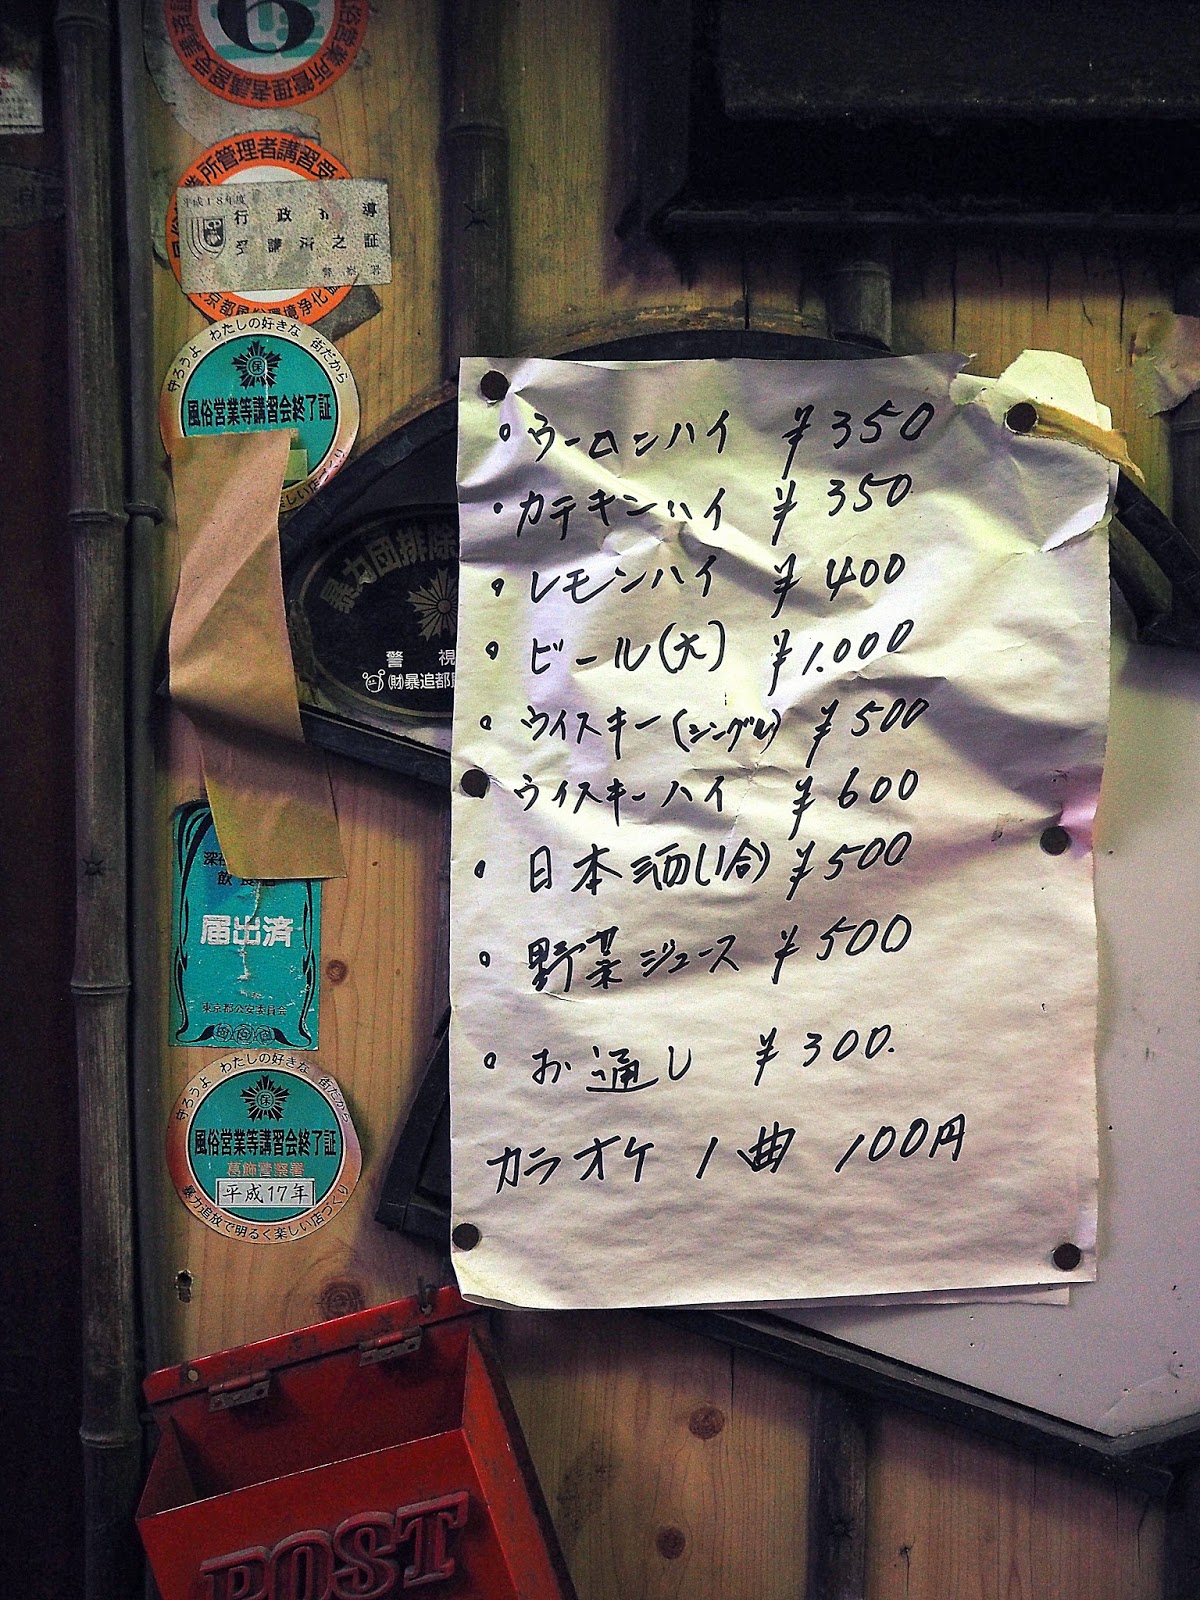 6
風俗営業所管理者講習受講済証
所管理者講習受
平成18年度
行政指導
受講済之証
警察署
東京都風俗環境浄化協
守ろうよ わたしの好きな 街だから
風俗営業等講習会終了証
暴力団排除
警 視
(財)暴追都
届出済
東京都公安委員会
守ろうよ わたしの好きな 街だから
風俗営業等講習会終了証
葛飾警察署
平成17年
暴力追放で明るく楽しい店づくり
POST
・ウーロンハイ ¥350
・カテキンハイ ¥350
・レモンハイ ¥400
・ビール(大) ¥1.000
・ウイスキー(シングル) ¥500
ウイスキーハイ ¥600
・日本酒(1合) ¥500
・野菜ジュース ¥500
・お通し ¥300.
カラオケ1曲 100円